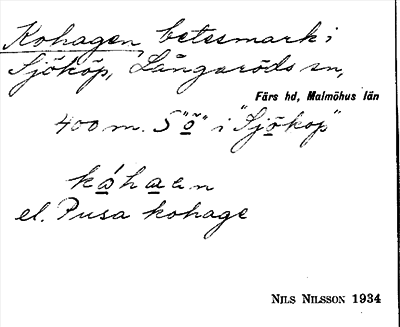 Kohagen, betesmark i
Sjököp, Långaröds sn,
Färs hd, Malmöhus län
400 m. S "ö" i "Sjököp"
káhaen
el. Pusa kohage
NILS NILSSON 1934